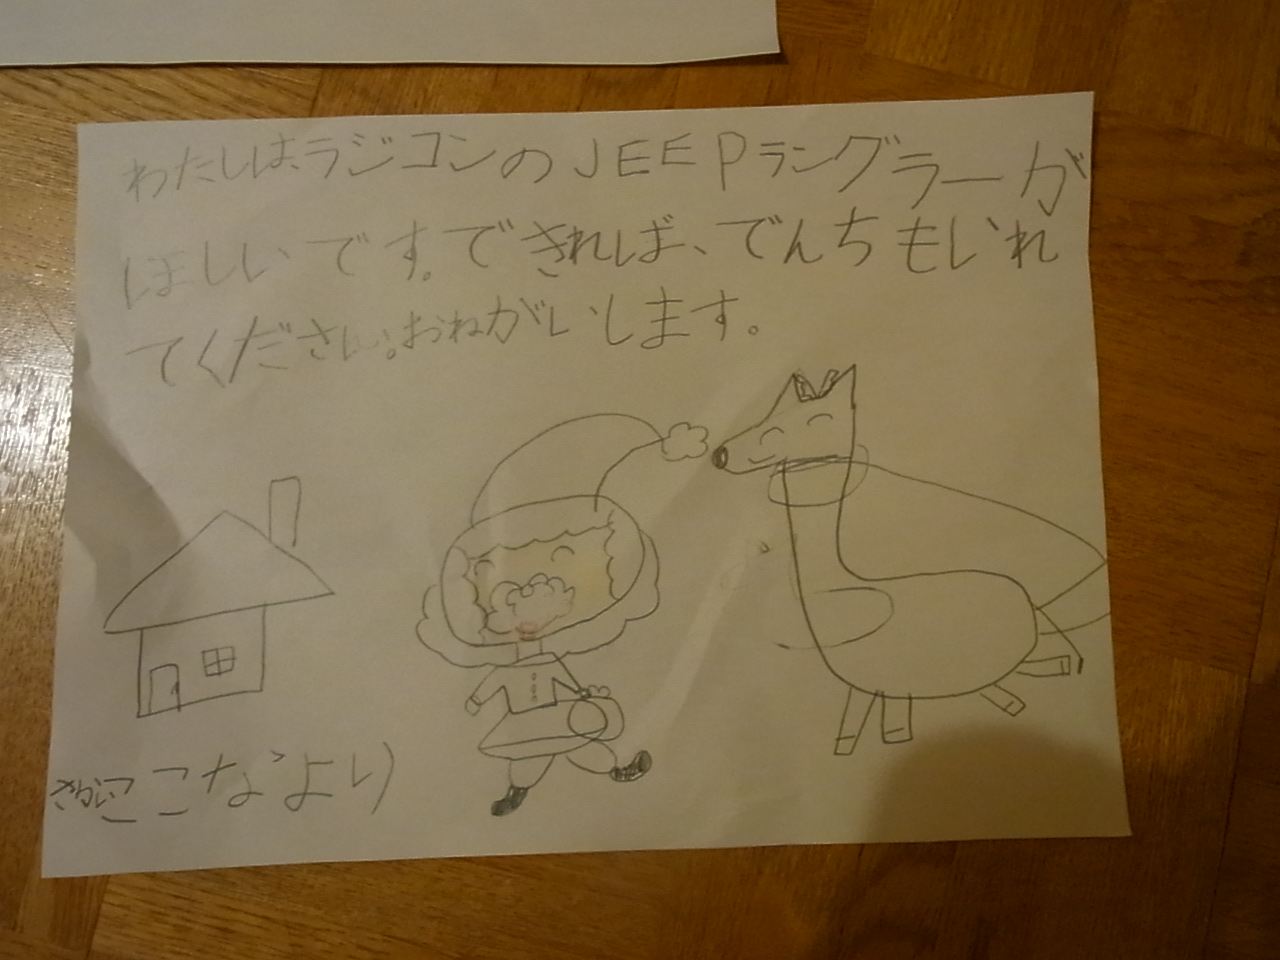 わたしは、ラジコンのJEEPラングラーが
ほしいです。できれば、でんちもいれ
てください。おねがいします。
ここなより